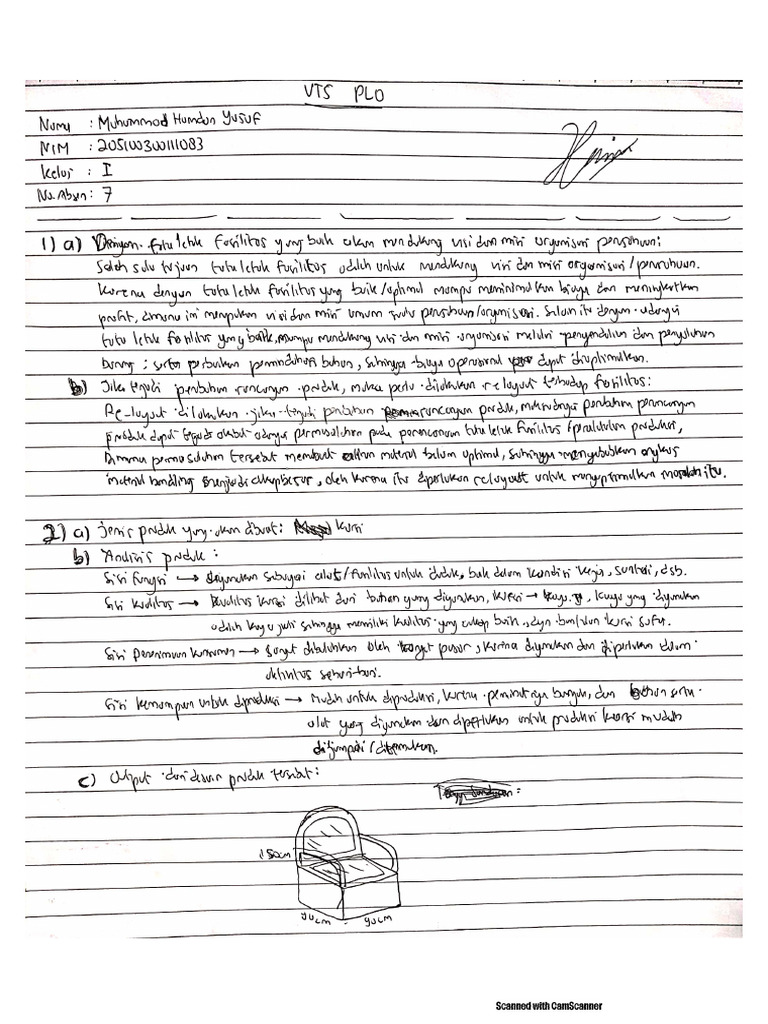 UTS PLO
Nama : Muhammad Hamdan Yusuf
NIM : 205100300111083
Kelas : I
No. Absen : 7
1) a) Dengan tata letak fasilitas yang baik akan mendukung visi dan misi organisasi perusahaan:
Salah satu tujuan tata letak fasilitas adalah untuk mendukung visi dan misi organisasi/perusahaan.
Karena dengan tata letak fasilitas yang baik/optimal mampu meminimalkan biaya dan meningkatkan
profit, dimana ini merupakan visi dan misi umum suatu perusahaan/organisasi. Selain itu dengan adanya
tata letak fasilitas yang baik, mampu mendukung visi dan misi organisasi melalui pengendalian dan penyaluran
barang ; serta perbaikan pemindahan bahan, sehingga biaya operasional dapat dioptimalkan.
b) Jika terjadi perubahan rancangan produk, maka perlu dilakukan relayout terhadap fasilitas:
Re-layout dilakukan jika terjadi perubahan rancangan produk, perubahan perancangan
produk dapat terjadi akibat adanya permasalahan pada perencanaan tata letak fasilitas / produksi,
Dimana permasalahan tersebut membuat aliran material belum optimal, sehingga mengakibatkan ongkos
material handling menjadi cukup besar, oleh karena itu diperlukan relayout untuk mengoptimalkan masalah itu.
2) a) Jenis produk yang akan dibuat: kursi
b) Analisis produk :
Sisi fungsi → digunakan sebagai alat/fasilitas untuk duduk, baik dalam kondisi kerja, santai, dsb.
Sisi kualitas → Kualitas kursi dilihat dari bahan yang digunakan, kursi → kayu, kayu yang digunakan
adalah kayu jati sehingga memiliki kualitas yang cukup baik, dan bantalan kursi sofa.
Sisi Penerimaan konsumen → Sangat dibutuhkan oleh target pasar, karena digunakan dan diperlukan dalam
aktivitas sehari-hari.
Sisi kemampuan untuk diproduksi → Mudah untuk diproduksi, karena peminatnya banyak, dan bahan serta
alat yang digunakan dan diperlukan untuk produksi kursi mudah
dijumpai/ditemukan.
c) Output dan desain produk tersebut:
150cm
40cm - 40cm
Scanned with CamScanner